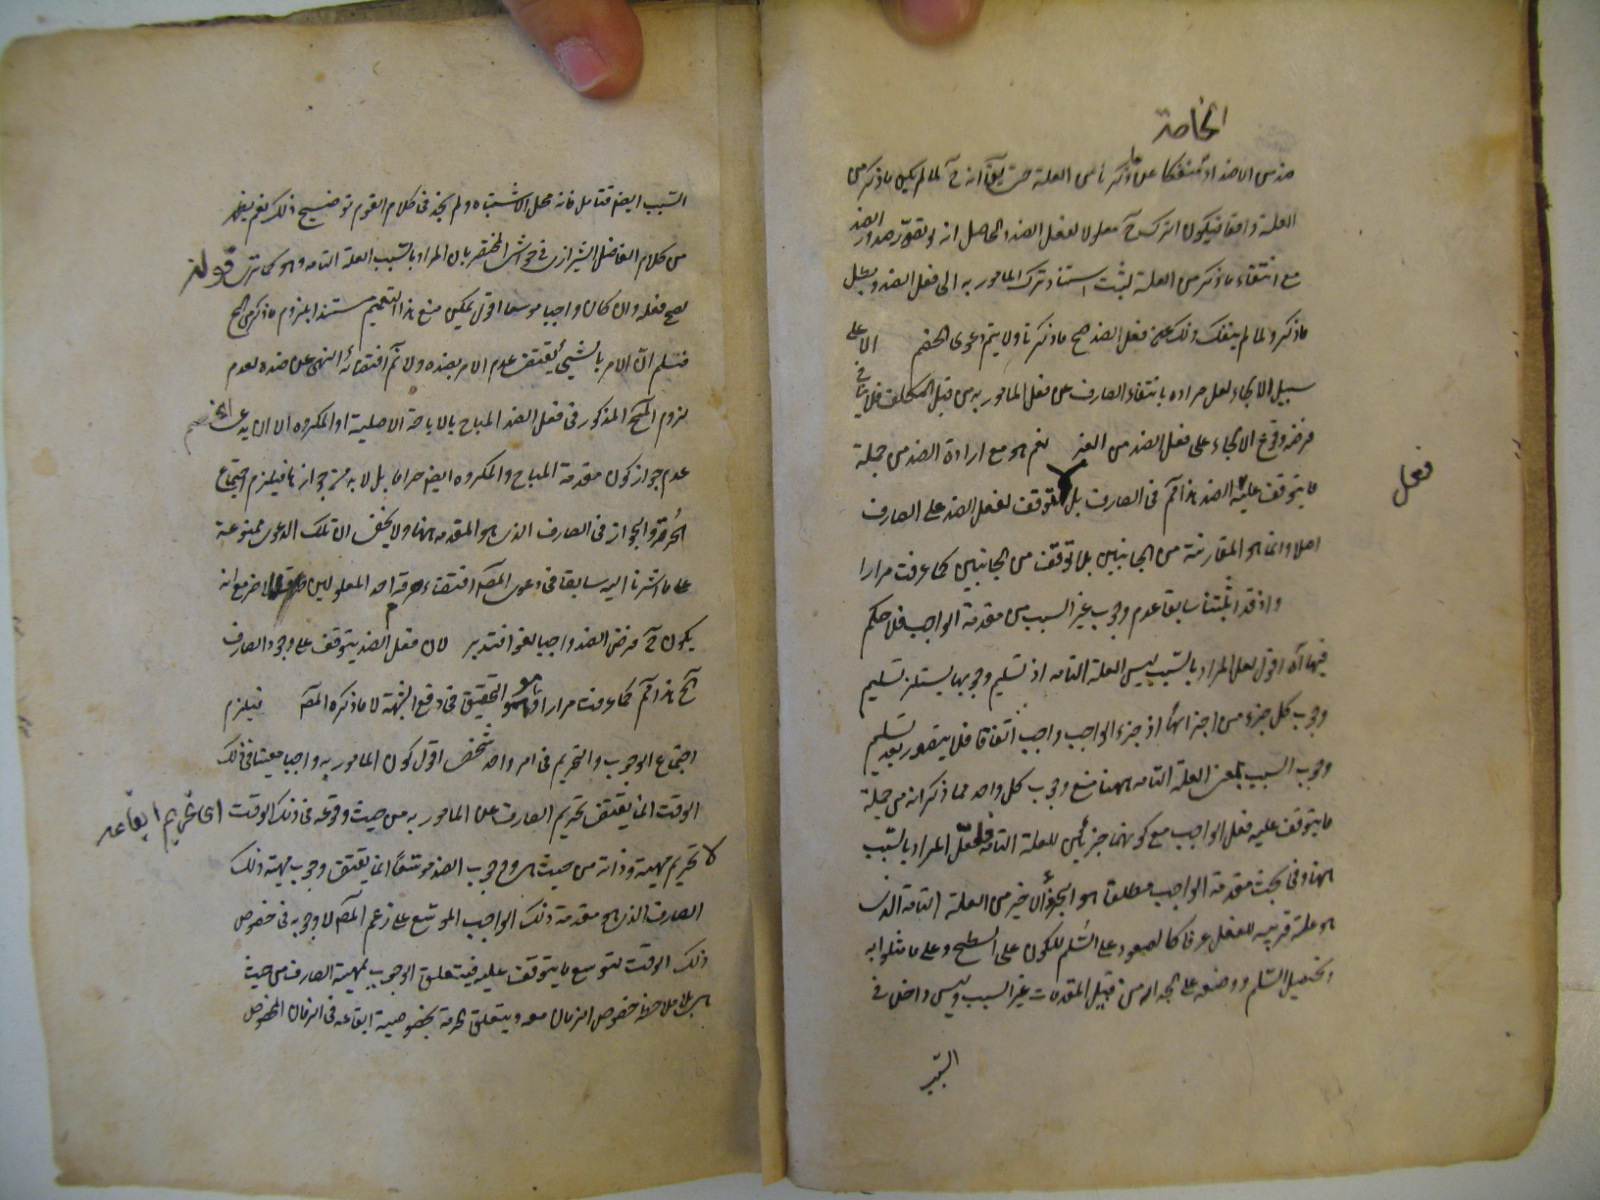 الخاصة
العلة واقعا فيكون الترك ح معلولا لفعل الضد والحاصل انه لو تصور صدور الضد
مع انتفاء ما ذكر من العلة لثبت استناد ترك المامور به الى فعل الضد وبطل
ما ذكر ولما لم ينفك ذلك عن فعل الضد صح ما ذكرنا ولا يتم دعوى الخصم الا على
سبيل الالجاء لعل مراده بانتفاء الصارف عن فعل المامور به من قبل المكلف فلا ينافى
فرضه وقوع الالجاء على فعل الضد من الغير نعم هو مع ارادة الضد من جملة
ما يتوقف عليه الضد هذا في الصارف بل لا توقف لفعل الضد على الصارف
فعل
اصلا وانما هو المقارنة من الجانبين بلا توقف من الجانبين كما عرفت مرارا
واذ قد اثبتنا سابقا عدم وجوب غير السبب من مقدمة الواجب فلا حكم
فيها آه اقول لعل المراد بالسبب ليس العلة التامه اذ تسليم وجوبها يستلزم تسليم
وجوب كل جزء من اجزائها اذ جزء الواجب واجب اتفاقا فلا يتصور بعد تسليم
وجوب السبب بمعنى العلة التامه ههنا منع وجوب كل واحد مما ذكر انه من جملة
ما يتوقف عليه فعل الواجب مع كونهما جزئين للعلة التامه فلعل المراد بالسبب
ههنا وفى بحث مقدمة الواجب مطلقا هو الجزء الاخير من العلة التامة الذى
هو علة قريبه للفعل عرفا كالصعود على السلم للكون على السطح وعلى ما مثلوا به
وتحصيل السلم ووضعه على الجدار من قبيل المقدمات غير السبب وليس داخل فى
السبب
السبب ايضا فتامل فانه محل الاشتباه ولم نجد فى كلام القوم توضيح ذلك نعم يظهر
من كلام الفاضل الشيرازى فى حواشى المختصر بان المراد بالسبب العلة التامه وهو كما ترى قوله
لصح فعله وان كان واجبا موسعا اقول يمكن منع هذا التعميم مستندا بلزوم ما ذكر
فتسلم ان الامر بالشيئ يقتضى عدم الامر بضده ولا ثم اقتضائه النهى عن ضده لعدم
لزوم المذكور فى فعل الضد المباح بالاباحة الاصلية او المكروه الا ان يدعى الخصم
عدم جواز كون مقدمة المباح والمكروه ايضا حراما بل لا بد من جوازها فيلزم اجتماع
الحرمة والجواز فى الصارف الذى هو المقدمة ههنا ولا يخفى ان تلك الدعوى ممنوعة
على ما اشرنا اليه سابقا فى دعوى المصه اقتضاء حرمة احد المعلولين مع انه
يكون ح فرض الضد واجبا لغوا فتدبر لان فعل الضد يتوقف على وجود الصارف
كما عرفت مرارا التحقيق فى دفع الشبهة لا ما ذكره المصه فيلزم
اجتماع الوجوب والتحريم فى امر واحد شخصى اقول كون المامور به واجبا معينا فى ذلك
الوقت انما يقتضى تحريم الصارف عن المامور به من حيث وقوعه فى ذلك الوقت اى تحريم ايقاعه
لا تحريم مهيته وذاته من حيث هى ووجوب الضد موسعا انما يقتضى وجوب مهية ذلك
الصارف الذى هو مقدمة ذلك الواجب الموسع على زعم المصه لا وجوبه فى خصوص
ذلك الوقت لتوسيع ما يتوقف عليه فيتعلق الوجوب بمهية الصارف من حيث
هى بلا ملاحظة خصوص الزمان معه ويتعلق الحرمة بخصوصية ايقاعه فى الزمان المخصوص